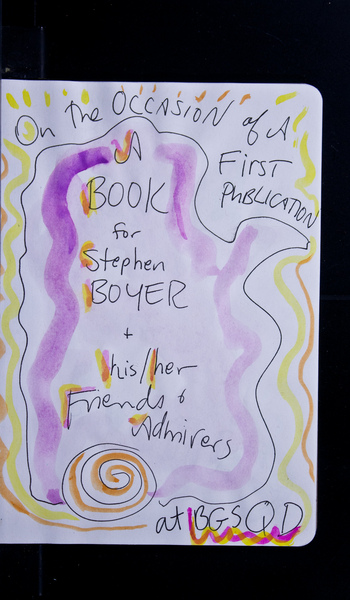 On the OCCASION of A
FIRST
PUBLICATION
A
BOOK
for
Stephen
BOYER
+
his/her
Friends &
Admirers
at BGSQD